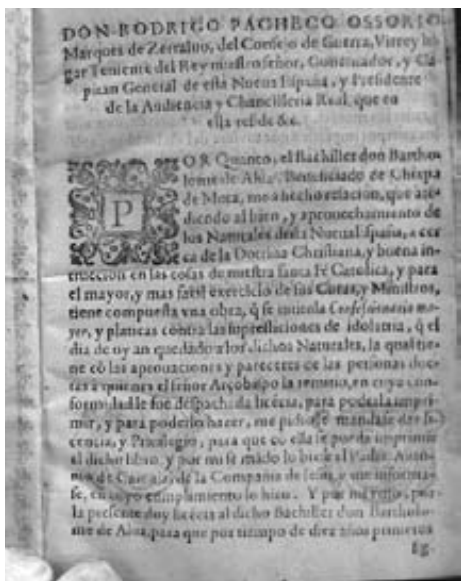 DON RODRIGO PACHECO OSSORIO
Marques de Zerraluo, del Consejo de Guerra, Virrey lu-
gar Teniente del Rey nuestro señor, Gouernador, y Ca-
pitan General de esta Nueua España, y Presidente
de la Audiencia y Chancilleria Real, que en
ella reside &c.
POR Quanto, el Bachiller don Bartho-
lome de Alua, Beneficiado de Chiapa
de Mota, me a hecho relacion, que ate-
diendo al bien, y aprouechamiento de
los Naturales desta Nueua España, a cer
ca de la Doctrina Christiana, y buena in-
struccion en las cosas de nuestra santa Fè Catolica, y para
el mayor, y mas facil exercicio de sus Curas, y Ministros,
tiene compuesta vna obra, q̃ se intitula Confessionario ma-
yor, y platicas contra las supresticiones de idolatria, q̃ el
dia de oy an quedado a los dichos Naturales, la qual tie-
ne cõ las aprouaciones y pareceres de las personas doc-
tas à quienes el señor Arçobispo la remitio, en cuya con-
formidad le fue despachada licècia, para poderla impri-
mir, y para poderlo hacer, me pidiò se mandase dar li-
cencia, y Priuilegio, para que cõ ella se pueda imprimir
el dicho libro, y por mi se mãdo lo viese el Padre
de la Compañia de Iesus, y me informa-
se, en cuyo cumplimiento lo hizo. Y por mi visto, por
la presente doy licècia al dicho Bachiller don Bartholo-
me de Alua, para que por tiempo de diez años primeros
sig-